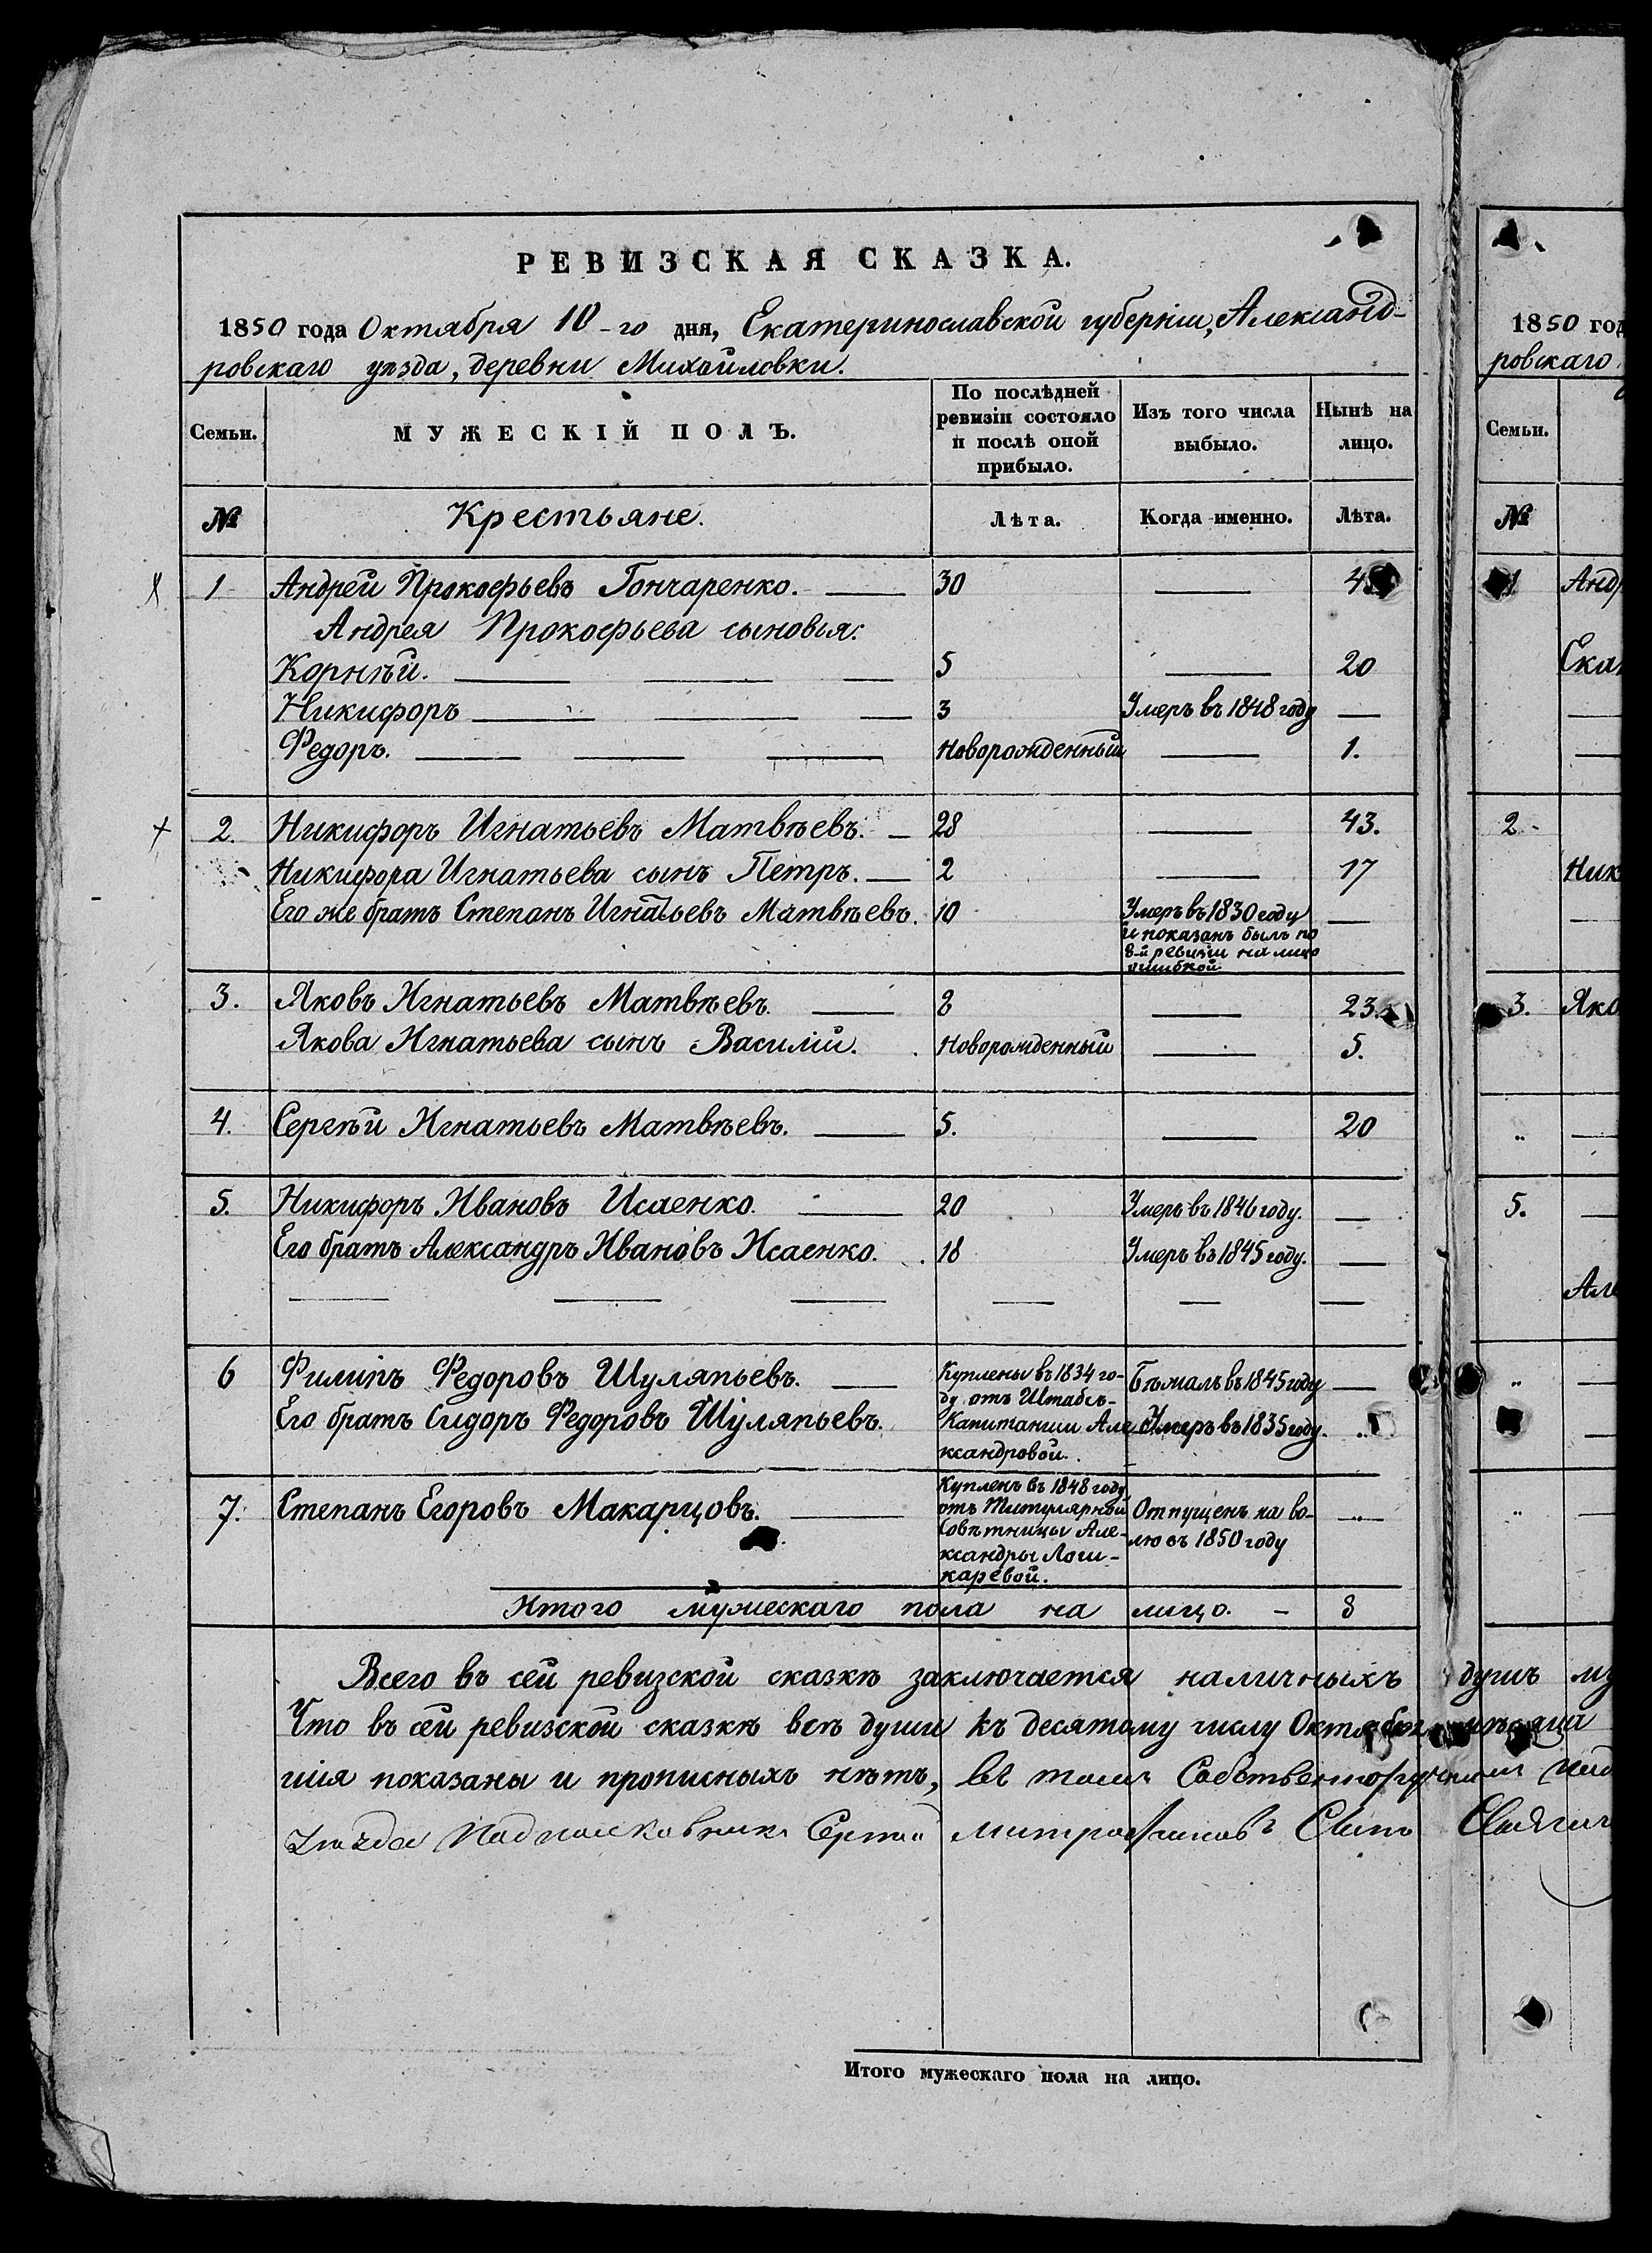 РЕВИЗСКАЯ СКАЗКА.
1850 года Октября 10-го дня, Екатеринославской губерніи, Александ-
ровскаго уѣзда, деревни Михайловки.
Семьи. МУЖЕСКІЙ ПОЛЪ. По послѣдней ревизіи состояло и послѣ оной прибыло. Изъ того числа выбыло. Нынѣ на лицо.
№ Крестьяне. Лѣта. Когда именно. Лѣта.
1 Андрей Прокофьевъ Гончаренко. — 30 —
Андрея Прокофьева сыновья:
Корнѣй. — 5 — 20
Никифоръ — 3 Умеръ въ 1848 году —
Федоръ. — Новорожденный — 1.
2. Никифоръ Игнатьевъ Матвѣевъ. — 28 — 43.
Никифора Игнатьева сынъ Петръ. — 2 — 17
Его же братъ Степанъ Игнатьевъ Матвѣевъ. 10 Умеръ въ 1830 году —
и показанъ былъ по
8-й ревизіи на лицо
ошибкой
3. Яковъ Игнатьевъ Матвѣевъ. — 8 — 23.
Якова Игнатьева сынъ Василій. Новорожденный — 5.
4. Сергѣй Игнатьевъ Матвѣевъ. — 5. — 20
5. Никифоръ Ивановъ Исаенко. — 20 Умеръ въ 1846 году. —
Его братъ Александръ Ивановъ Исаенко. 18 Умеръ въ 1845 году. —
6 Филипъ Федоровъ Шуляпьевъ. — Куплены въ 1834 го- Бѣжалъ въ 1845 году —
ду отъ Штабсъ-
Его братъ Сидоръ Федоровъ Шуляпьевъ. Капитанши Але- Умеръ въ 1835 году. „
ксандровой.
7. Степанъ Егоровъ Макарцовъ. — Купленъ въ 1848 году
отъ Титулярной Отпущенъ на во- „
Совѣтницы Але- лю въ 1850 году
ксандры Лош-
каревой.
Итого мужескаго пола на лицо. — 8
Всего въ сей ревизской сказкѣ заключается наличныхъ душъ
Что въ сей ревизской сказкѣ всѣ души къ десятому числу Октября мѣсяца
показаны и прописныхъ нѣтъ, въ томъ
Подполковникъ
Итого мужескаго пола на лицо.
1850 год
ровскаго
Семьи.
№
1 Анд
Ека
2
Ник
3. Яко
„
5.
Але
„
„